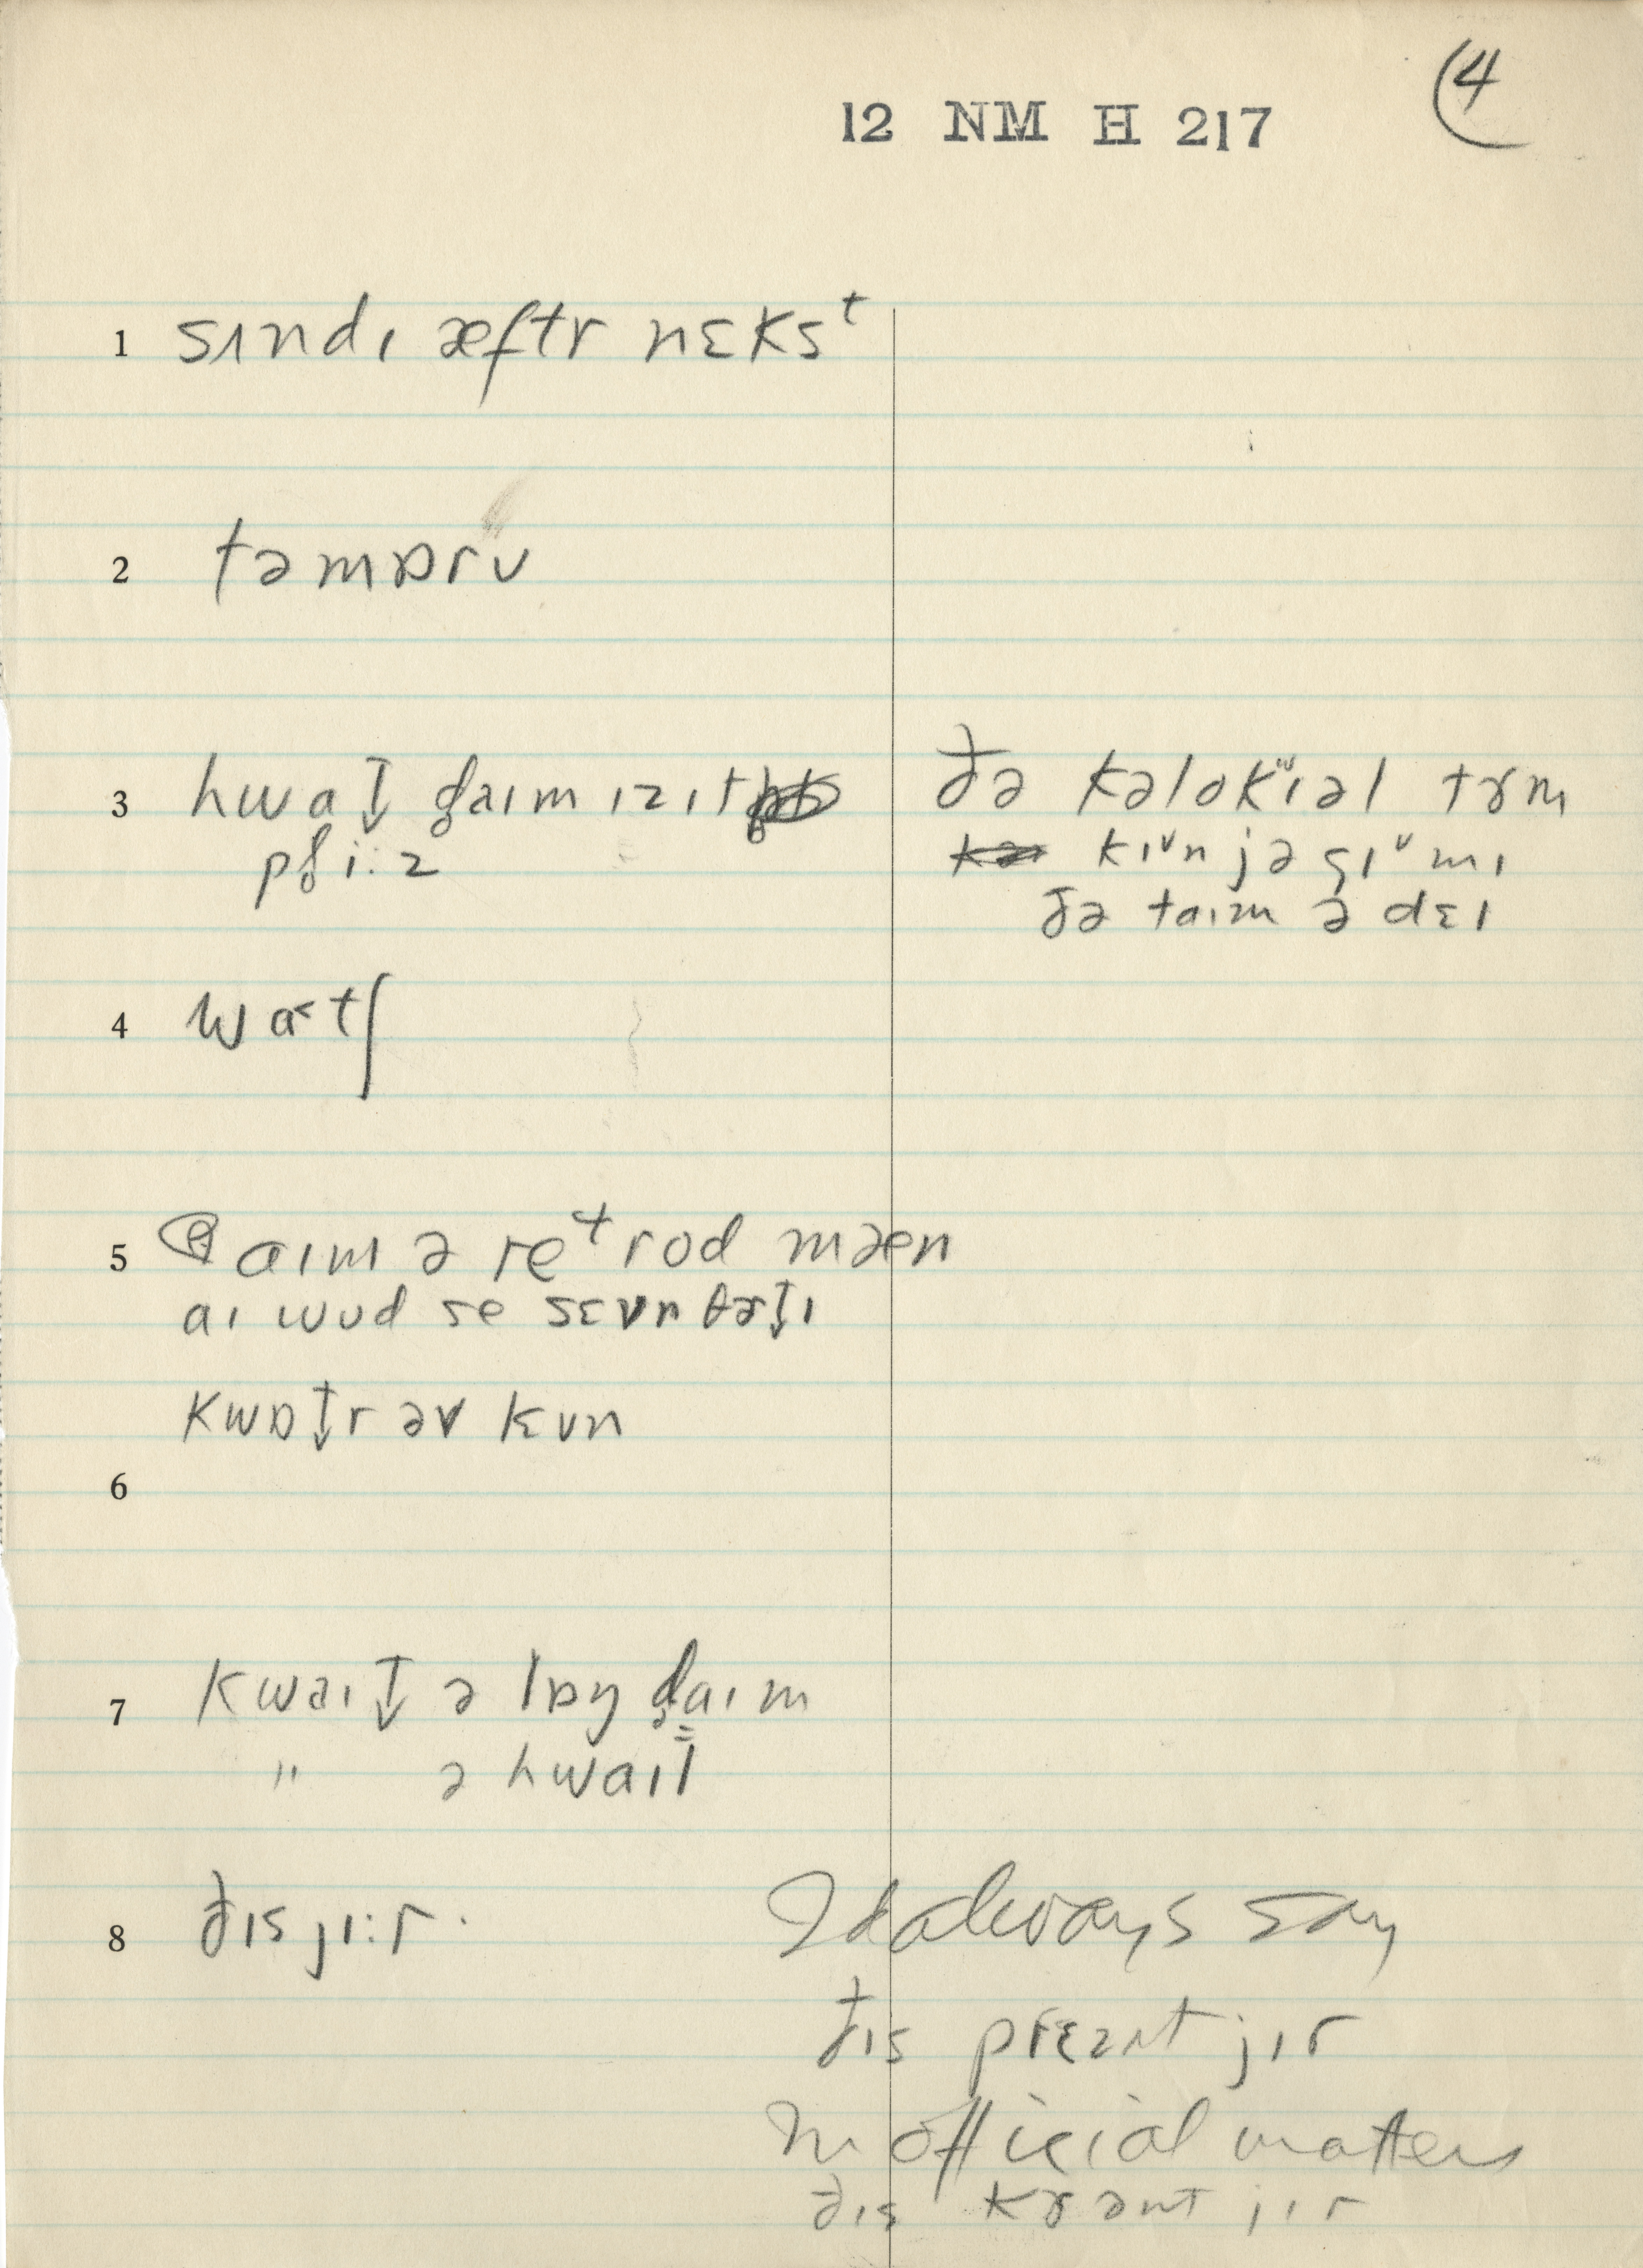 4
12 NM H 217
1 sʌndɪ æftr nɛksᵗ
2 təmɒrʊ
3 hwat̬ d̥aɪm ɪzɪt
pl̥i:z
ðə kəlokʷɪəl tɝm
kɪᵛn jə gɪᵛmɪ
ðə taɪm ə dɛɪ
4 wa˂tʃ
5 aɪm ə reᵗrod mæn
aɪ wʊd se sɛvn θɝt̬ɪ
kwɒt̬r əv kvn
6
7 kwaɪt̬ ə lɒŋ d̥aɪm
" ə hwaɪl
8 ðɪs jɪ:r.
I'd always say
ðɪs prɛznt jɪr
In official matters
ðɪs kɝənt jɪr